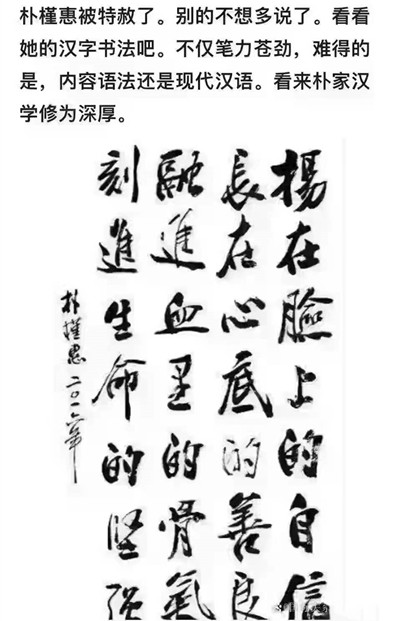 朴槿惠被特赦了。别的不想多说了。看看
她的汉字书法吧。不仅笔力苍劲，难得的
是，内容语法还是现代汉语。看来朴家汉
学修为深厚。
揚在臉上的自信
長在心底的善良
融進血里的骨氣
刻進生命的堅强
朴槿惠 二〇一六年